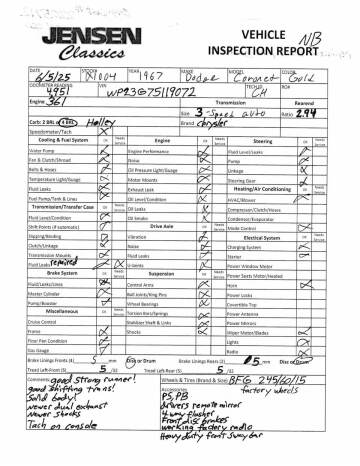 JENSEN
Classics
VEHICLE
INSPECTION REPORT
N/B
DATE 6/5/25 STOCK# X1004 YEAR 1967 MAKE Dodge MODEL Coronet COLOR Gold
ODOMETER READING 4951 VIN WP23G75119072 TECH ID CH RO#
Engine 361 Transmission Rearend
Carb: 2 BRL 4 BRL Holley Size 3-Speed auto Ratio 2.94
Brand Chrysler
Speedometer/Tach
Cooling & Fuel System OK Needs Service Engine OK Needs Service Steering OK Needs Service
Water Pump Engine Performance Fluid Level/Leaks
Fan & Clutch/Shroud Noise Pump
Belts & Hoses Oil Pressure Light/Gauge Linkage
Temperature Light/Gauge Motor Mounts Steering Gear
Fluid Leaks Exhaust Leak Heating/Air Conditioning
Fuel Pump/Tank & Lines Oil Level/Condition HVAC/Blower
Transmission/Transfer Case Oil Leaks Compressor/Clutch/Hoses
Fluid Level/Condition Oil Smoke Condenser/Evaporator
Shift Points (if automatic) Drive Axle Mode Control
Slipping/Binding Vibration Electrical System
Clutch/Linkage Noise Charging System
Transmission Mounts Fluid Level/Condition Starter
Fluid Leaks repaired Fluid Leaks Power Window Motor
U-Joints
Brake System Suspension Power Seats Motor/Heated
Fluid/Leaks/Lines Control Arms Horn
Master Cylinder Ball Joints/King Pins Power Locks
Pump/Booster Wheel Bearings Covertible Top
Miscellaneous Torsion Bars/Springs Power Antenna
Cruise Control Stabilizer Shaft & Links Power Mirrors
Frame Shocks Wiper Motor/Blades
Floor Pan Condition Struts Lights
Gas Gauge Radio
Brake Linings Fronts (4) 5 mm Disc or Drum Brake Linings Rears (2) 5 mm Disc or Drum
Tread Left-Front (5) 5 /32 Tread Left-Rear (5) 5 /32
Comments: good strong runner!
good shifting trans!
Solid body!
newer dual exhaust
Newer shocks
Tach on console
Wheels & Tires (Brand & Size) BFG 245/60/15
factory wheels
Accessories
PS, PB
drivers remote mirror
4 way flasher
Front disc brakes
working factory radio
Heavy duty front sway bar